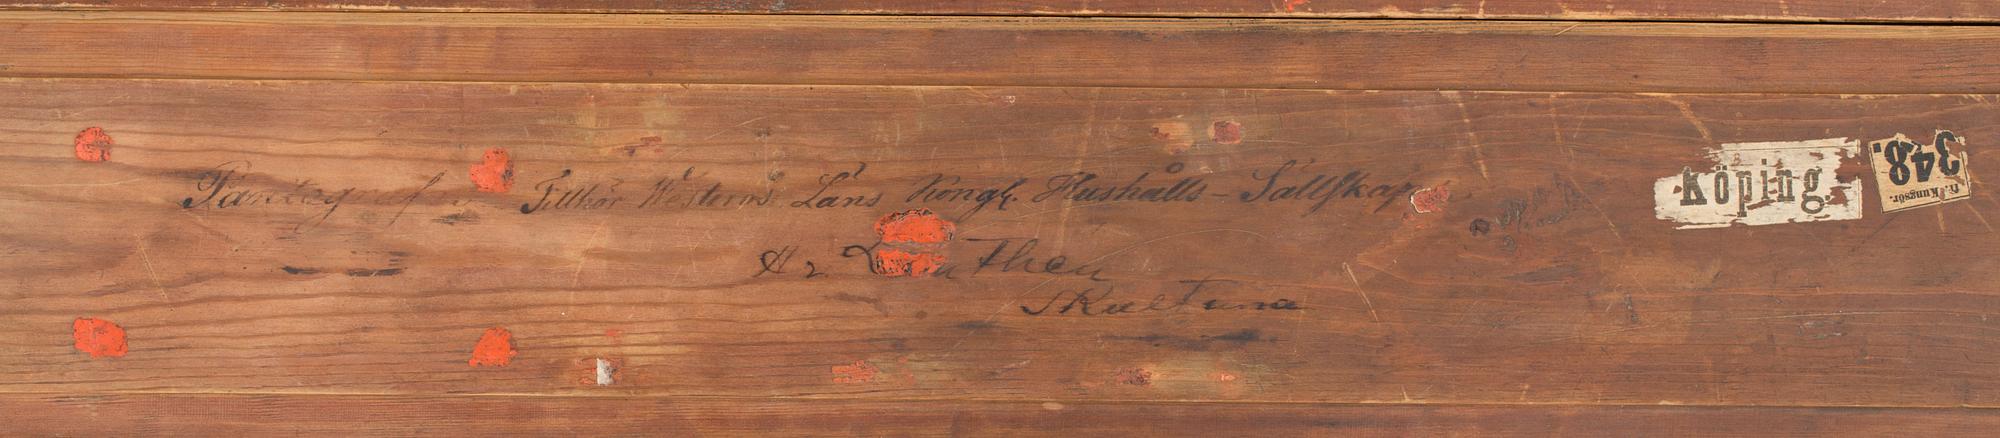 Pantograf Tillhör Westerås Läns Kongl. Hushålls-Sällskap
Skultuna
Köping.
348.
fr. Kungsör.